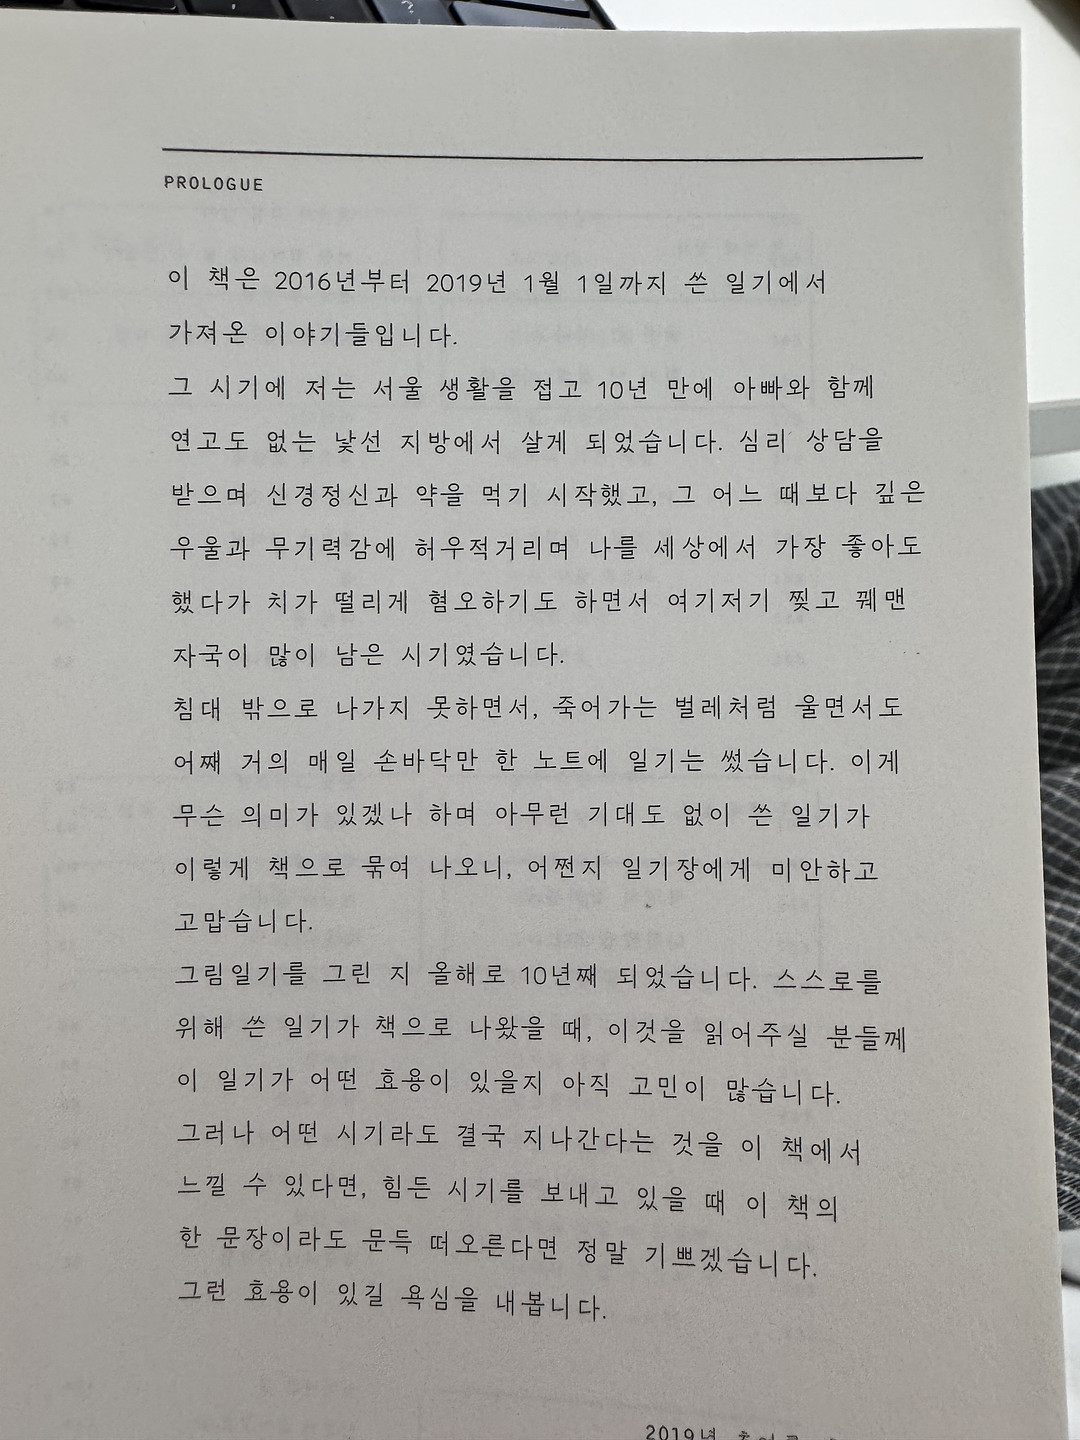 PROLOGUE
이 책은 2016년부터 2019년 1월 1일까지 쓴 일기에서
가져온 이야기들입니다.
그 시기에 저는 서울 생활을 접고 10년 만에 아빠와 함께
연고도 없는 낯선 지방에서 살게 되었습니다. 심리 상담을
받으며 신경정신과 약을 먹기 시작했고, 그 어느 때보다 깊은
우울과 무기력감에 허우적거리며 나를 세상에서 가장 좋아도
했다가 치가 떨리게 혐오하기도 하면서 여기저기 찢고 꿰맨
자국이 많이 남은 시기였습니다.
침대 밖으로 나가지 못하면서, 죽어가는 벌레처럼 울면서도
어째 거의 매일 손바닥만 한 노트에 일기는 썼습니다. 이게
무슨 의미가 있겠나 하며 아무런 기대도 없이 쓴 일기가
이렇게 책으로 묶여 나오니, 어쩐지 일기장에게 미안하고
고맙습니다.
그림일기를 그린 지 올해로 10년째 되었습니다. 스스로를
위해 쓴 일기가 책으로 나왔을 때, 이것을 읽어주실 분들께
이 일기가 어떤 효용이 있을지 아직 고민이 많습니다.
그러나 어떤 시기라도 결국 지나간다는 것을 이 책에서
느낄 수 있다면, 힘든 시기를 보내고 있을 때 이 책의
한 문장이라도 문득 떠오른다면 정말 기쁘겠습니다.
그런 효용이 있길 욕심을 내봅니다.
2019년